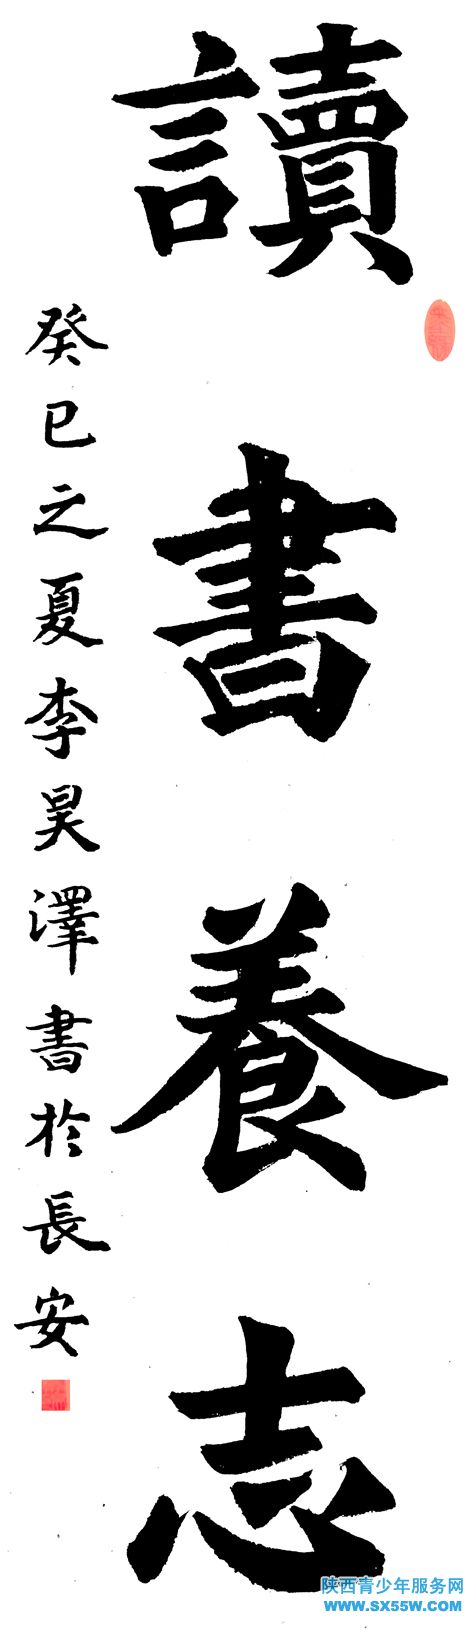 讀書養志
癸巳之夏李昊澤書於長安
陕西青少年服务网
www.sx55w.com